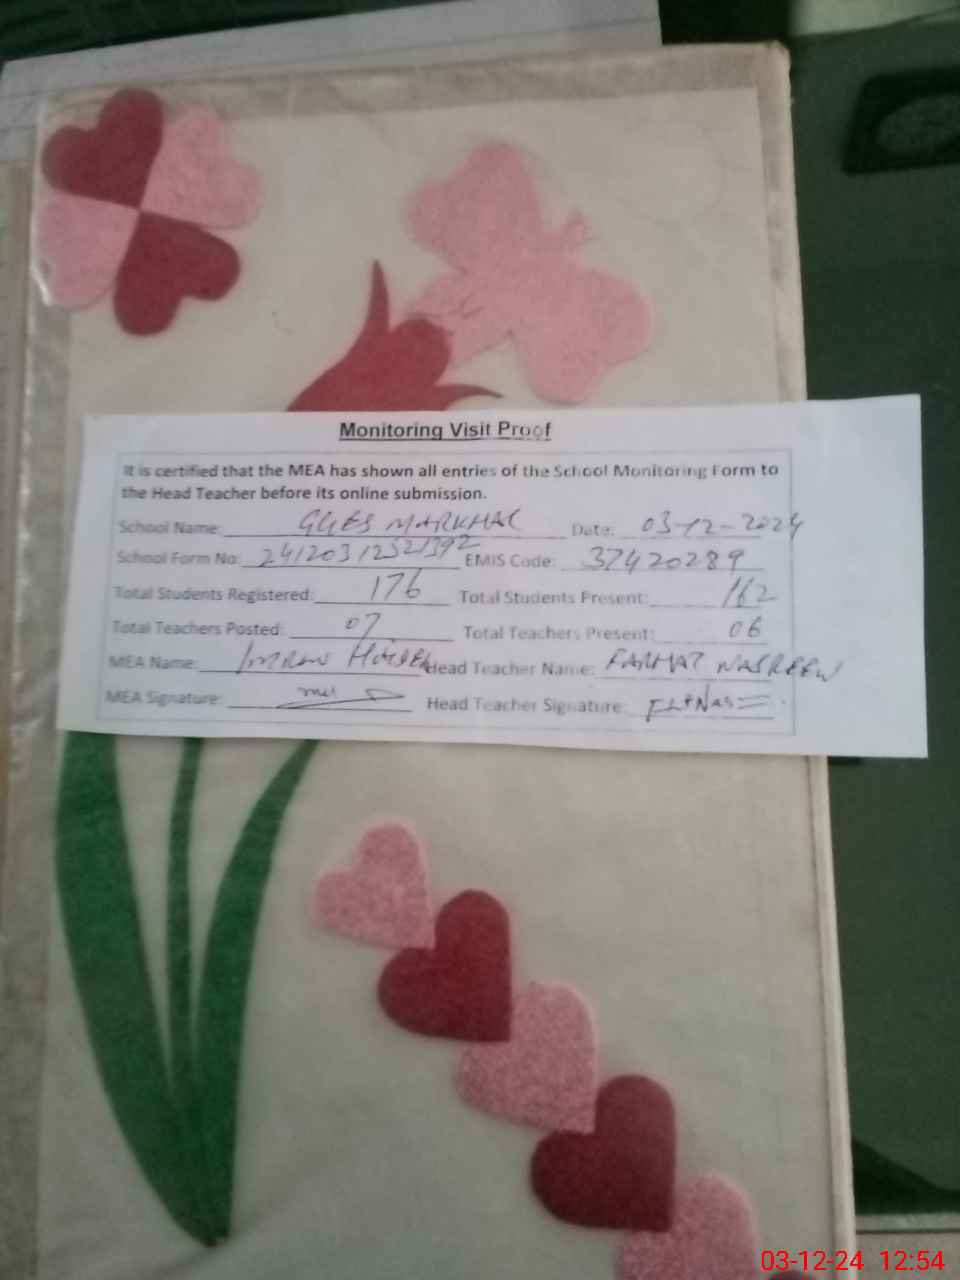 Monitoring Visit Proof
It is certified that the MEA has shown all entries of the School Monitoring Form to
the Head Teacher before its online submission.
School Name: GGES MARKHAL Date: 03-12-2024
School Form No: EMIS Code: 37420289
Total Students Registered: 176 Total Students Present: 162
Total Teachers Posted: 07 Total Teachers Present: 06
MEA Name: IMRAN Head Teacher Name: FARHAT NASREEN
MEA Signature: Head Teacher Signature:
03-12-24 12:54